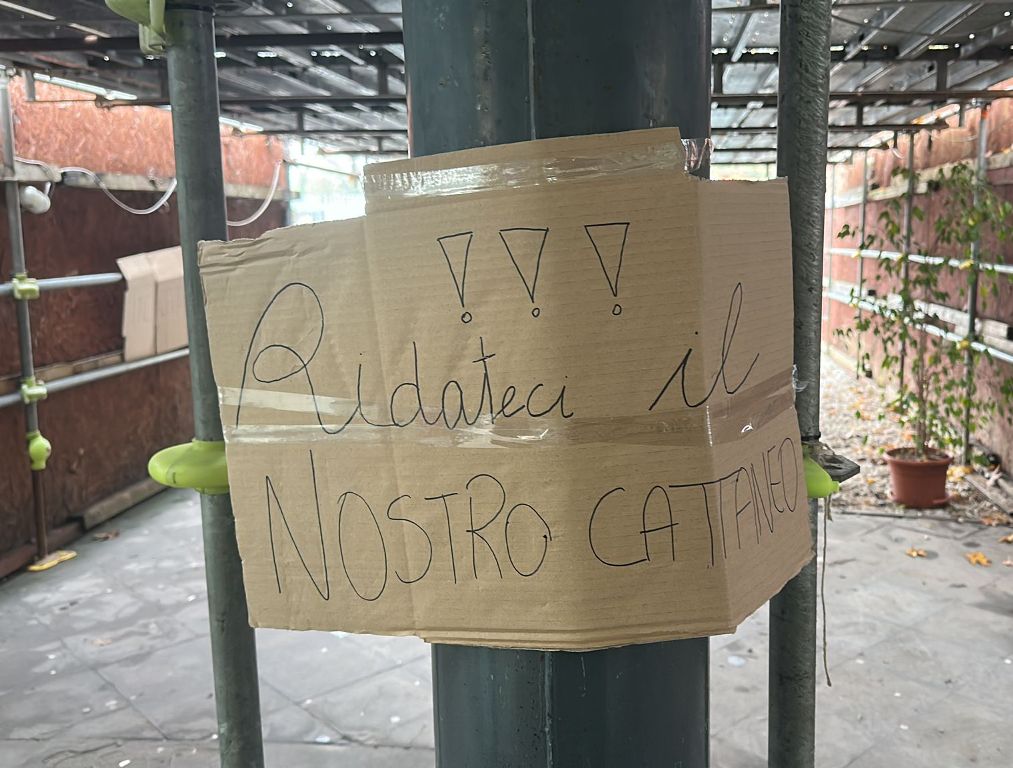 !!!
Ridateci il
NOSTRO CATTANEO